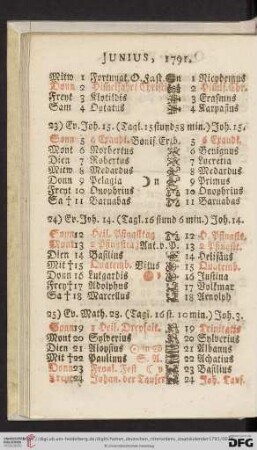 JUNIUS, 1791.
Mitw 1 Fortunat. Q. Fast. 1 Nicodemus
Donn 2 Himmelfahrt Christi 2 Himlf. Chr.
Freyt 3 Klotildis 3 Erasmus
Sam 4 Optatus 4 Karpasius
23) Ev. Joh. 15. (Tagl. 15 stund 58 min.) Joh. 15.
Sonn 5 6 Exaudi. Bonif. Erzb. 5 6 Exaudi.
Mont 6 Norbertus 6 Benignus
Dien 7 Robertus 7 Lucretia
Mitw 8 Medardus 8 Medardus
Donn 9 Pelagia 9 Primus
Freyt 10 Onophrius 10 Onophrius
Sa † 11 Barnabas 11 Barnabas
24) Ev. Joh. 14. (Tagl. 16 stund 6 min.) Joh. 14.
Sonn 12 Heil. Pfingsttag 12 H. Pfingstf.
Mont 13 Pfingstm. Ant. v. P. 13 Pfingstf.
Dien 14 Basilius 14 Helisäus
Mit † 15 Quatemb. Vitus 15 Quatemb.
Donn 16 Luitgardis 16 Justina
Frey † 17 Adolphus 17 Volkmar
Sa † 18 Marcellus 18 Arnolph
25) Ev. Math. 28. (Tagl. 16 st. 10 min.) Joh. 3.
Sonn 19 1 Heil. Dreyfalt. 19 Trinitatis
Mont 20 Sylverius 20 Sylverius
Dien 21 Aloysius 21 Albanus
Mit † 22 Paulinus S. A. 22 Achatius
Donn 23 Fronl. Fest 23 Basilius
Freyt 24 Johan. der Taufer 24 Joh. Tauf.